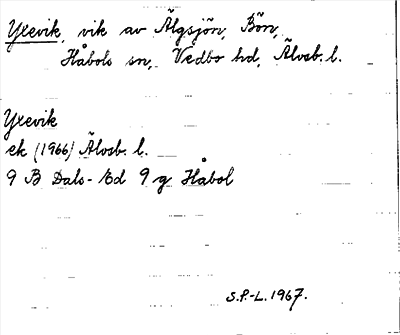 Yxevik, vik av Älgsjön, Bön,
Håbols sn, Vedbo hd, Älvsb. l.
Yxevik
ek (1966) Älvsb. l.
9 B Dals-Ed 9 g Håbol
S.P.-L. 1967.